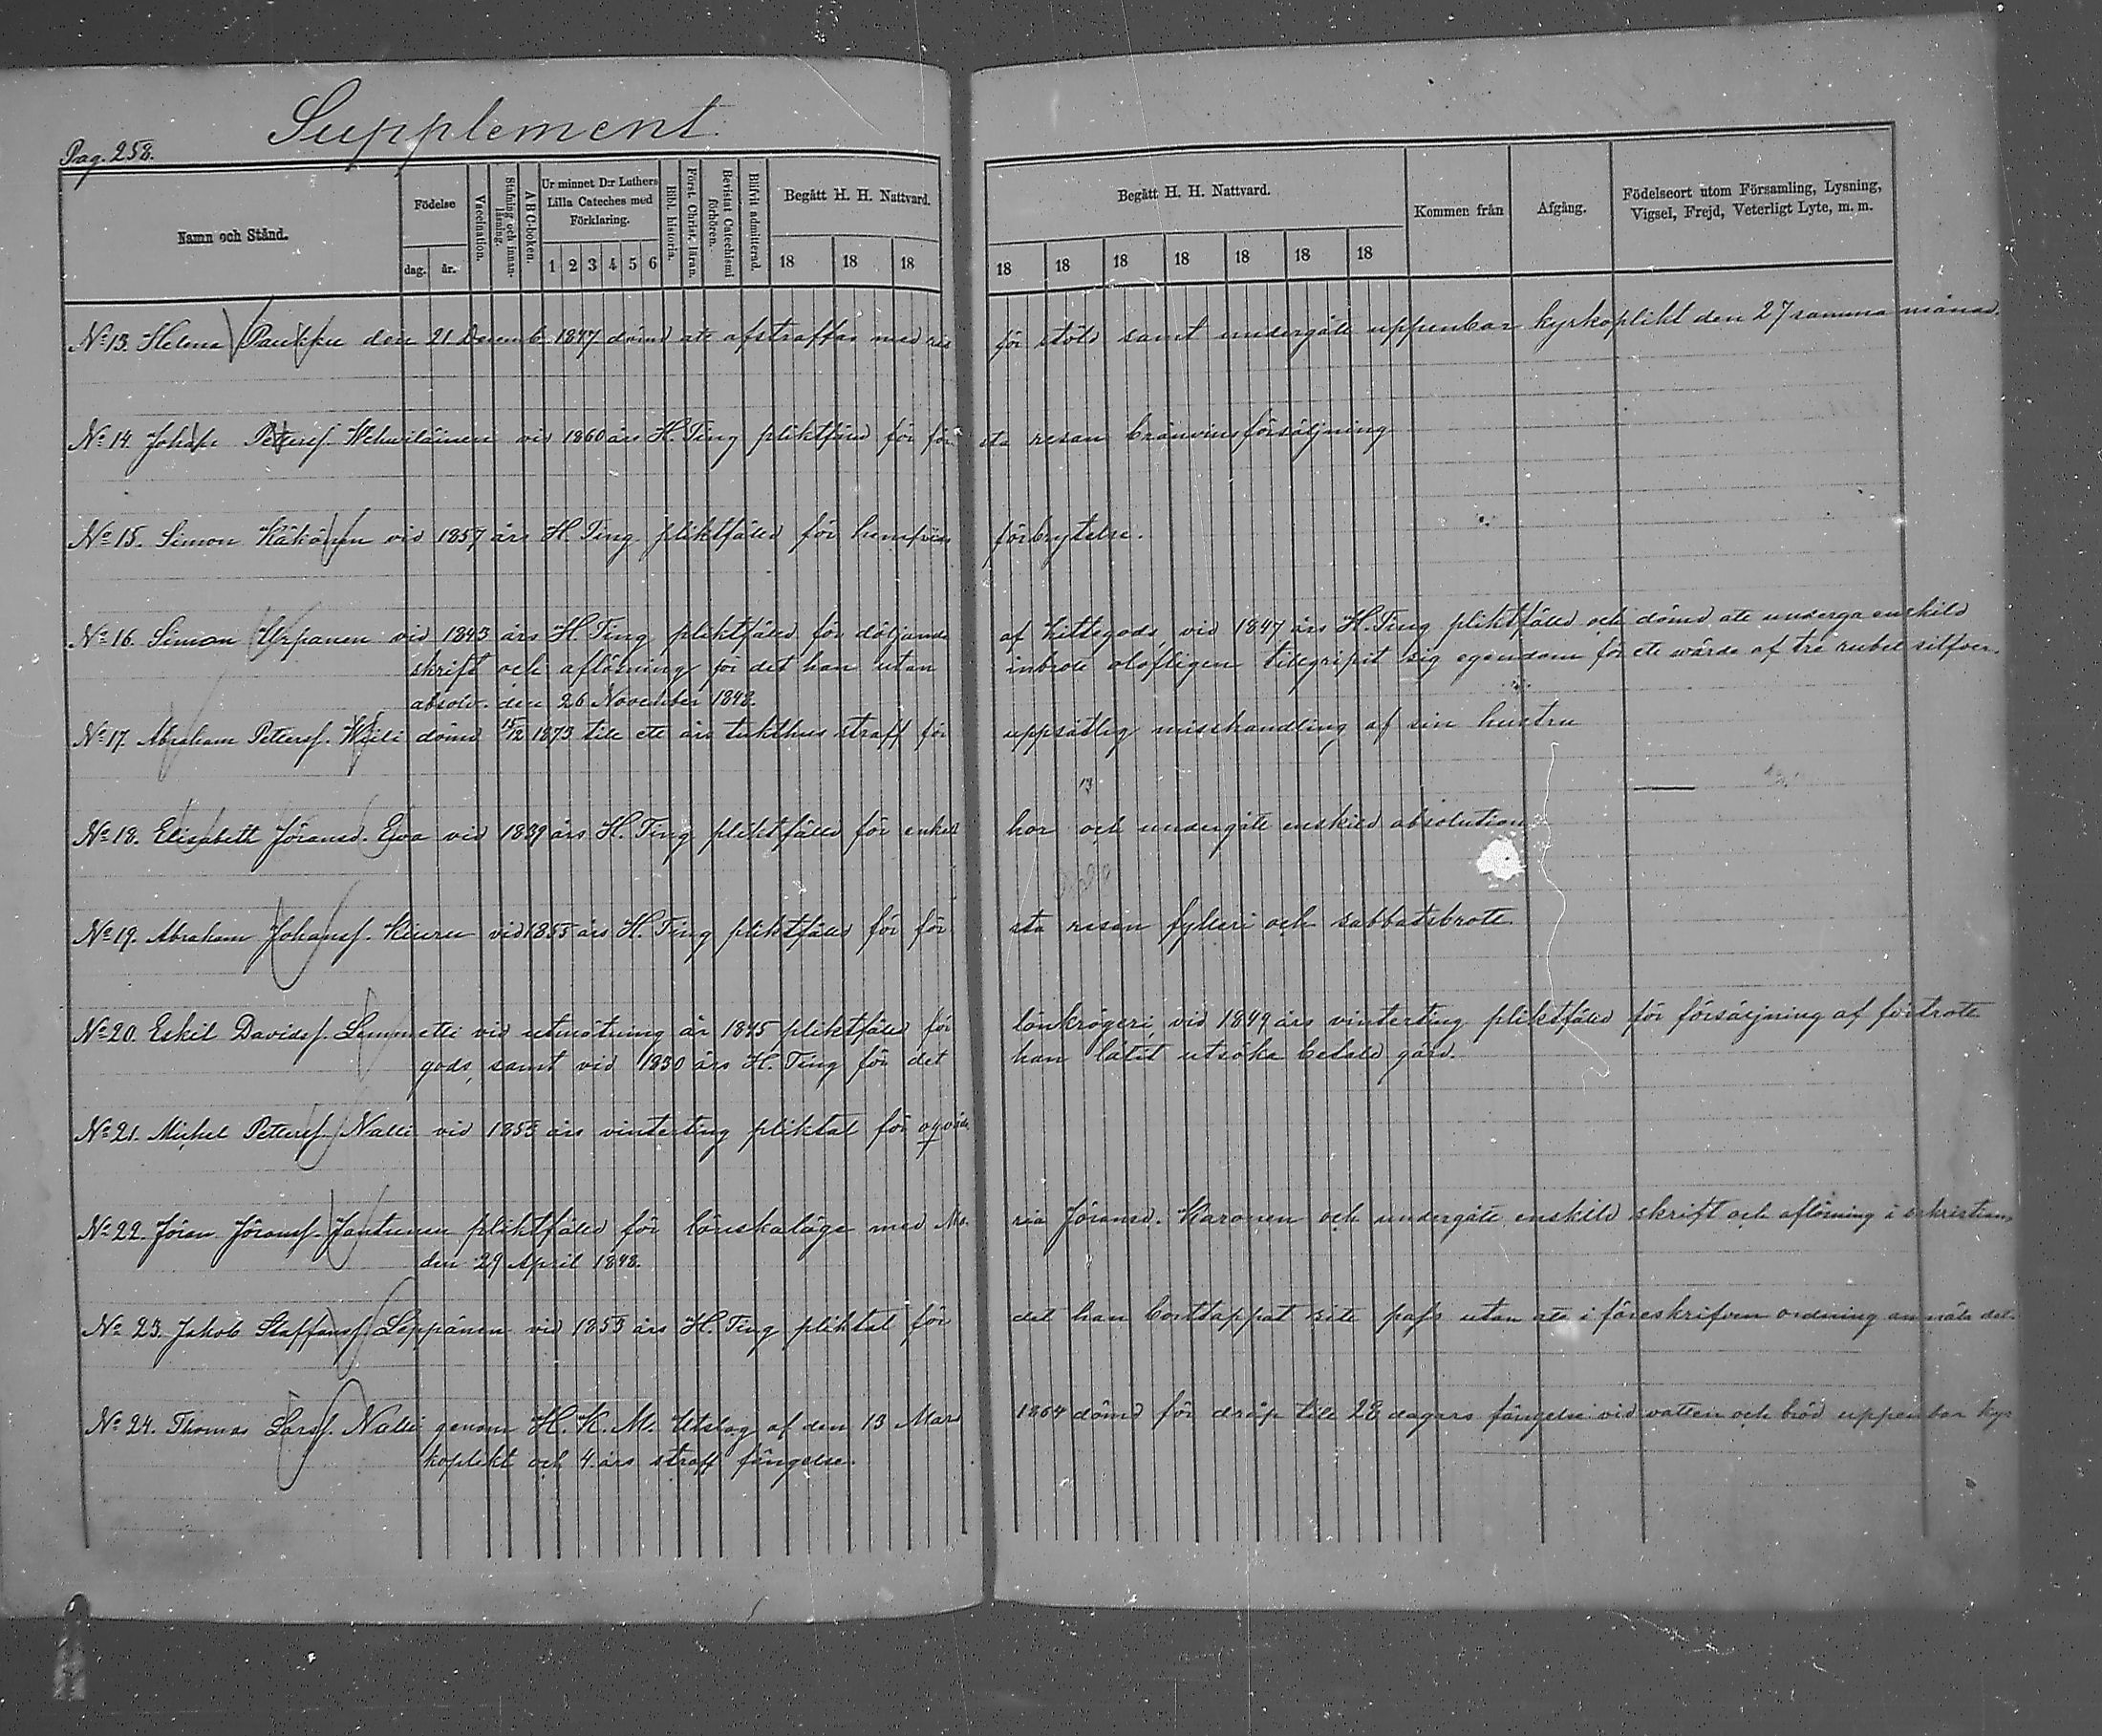 Supplement.
Pag. 258.
Namn och Stånd.
Födelse
dag. år.
Vaccination.
Stafning och innan-läsning.
A B C-boken.
Ur minnet D:r Luthers Lilla Cateches med Förklaring.
1 2 3 4 5 6
Bibl. historia.
Först. Christ. läran.
Bevistat Catechismi förhören.
Blifvit admitterad.
Begått H. H. Nattvard.
18 18 18
Begått H. H. Nattvard.
18 18 18 18 18 18 18
Kommen från
Afgång.
Födelseort utom Församling, Lysning, Vigsel, Frejd, Veterligt Lyte, m. m.
No 13. Helena Paukku den 21 Decemb. 1847 dömd att afstraffas med ris för stöld samt undergått uppenbar kyrkoplikt den 27 samma månad.
No 14. Johan Pettersf. Wehwiläinen vid 1860 års H. Ting pliktfäld för första resan bränvinsförsäljning
No 15. Simon Käkönen vid 1857 års H. Ting pliktfäld för hemfrids förbrytelse.
No 16. Simon Urpanen vid 1843 års H. Ting pliktfäld för döljande af hittegods, vid 1847 års H. Ting pliktfäld och dömd att undergå enskild
skrift och aflösning för det han utan inbrott olofligen tillegripit sig egendom för ett värde af tre rubel silfver.
absolv. den 26 November 1848.
No 17. Abraham Pettersf. dömd 15/12 1873 till ett års tukthus straff för uppsåtlig misshandling af sin hustru
No 18. Elisabeth Jöransd. Ewa vid 1839 års H. Ting pliktfälld för enkelt hor och undergått enskild absolution
No 19. Abraham Johansf. Kiuru vid 1855 års H. Ting pliktfäld för första resan fylleri och sabbatsbrott.
No 20. Eskil Davidsf. Lemmetti vid utmätning år 1845 pliktfäld för lönkrögeri, vid 1849 års vinterting pliktfäld för försäljning af förbrott
gods, samt vid 1850 års H. Ting för det han låtit utsöka betald gärd.
No 21. Michel Pettersf. Nalli vid 1853 års vinterting pliktat för oqväd.
No 22. Jöran Jöransf. Jantunen pliktfäld för lönskaläge med Maria Jöransd. Karonen och undergått enskild skrift och aflösning i sakristian
den 29 April 1848.
No 23. Jakob Staffansf. Leppänen vid 1853 års H. Ting pliktat för det han borttappat sitt pass utan att i föreskrifven ordning anmäla det.
No 24. Thomas Larsf. Nalli genom H. K. M. Utslag af den 13 Mars 1864 dömd för dråp till 28 dagars fängelse vid vatten och bröd uppenbar kyr-
koplikt och 4. års straff fängelse.